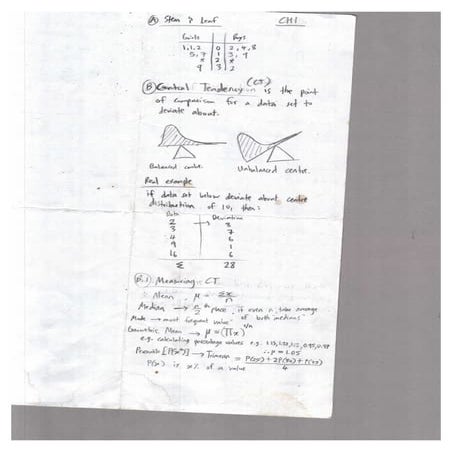 (A) Stem & leaf CH1
Girls | Boys
1,1,2 | 0 | 2,4,8
5,7 | 1 | 3,9
* | 2 | *
9 | 3 | 2
(B) Central Tendency (CT) is the point
of comparison for a data set to
deviate about.
Balanced centre. Unbalanced centre.
Real example
if data set below deviate about centre
distribution of 10, then:
Data | Deviation
2 → 8
3 7
4 6
9 1
16 6
Σ 28
(B.1) Measuring CT
Mean, μ = Σx/n
Median → n/2 th place, if even n, take average
of both medians
Mode → most frequent value
Geometric Mean → μ = (∏x)^1/n
e.g. calculating percentage values e.g.
∴ μ = 1.05
→ Trimean = P(25) + 2P(50) + P(75) / 4
P(x) is x% of a value